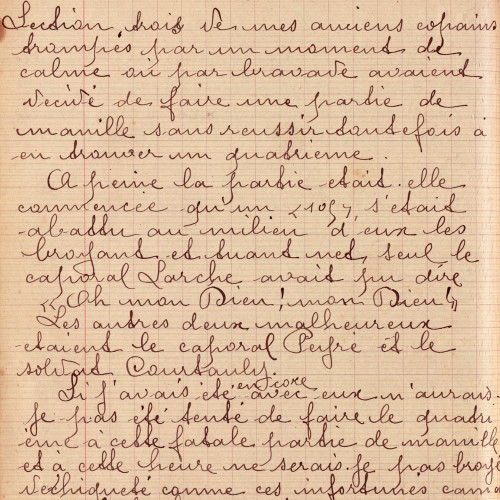 Section trois de mes anciens copains
trompés par un moment de
calme ou par bravade avaient
décidé de faire une partie de
manille sans reussir toutefois à
en trouver un quatrieme.
A peine la partie etait-elle
commencée qu'un "105" s'était
abattu au milieu d'eux les
broyant et tuant net, seul le
caporal Larche avait pu dire
"Oh mon Dieu! mon Dieu!"
Les autres deux malheureux
etaient le caporal Peyre et le
soldat Courtauly.
Si j'avais été encore avec eux n'aurais-
je pas été tenté de faire le quatri
eme à cette fatale partie de manille
et à cette heure ne serais-je pas broyé
dechiqueté comme ces infortunés cama